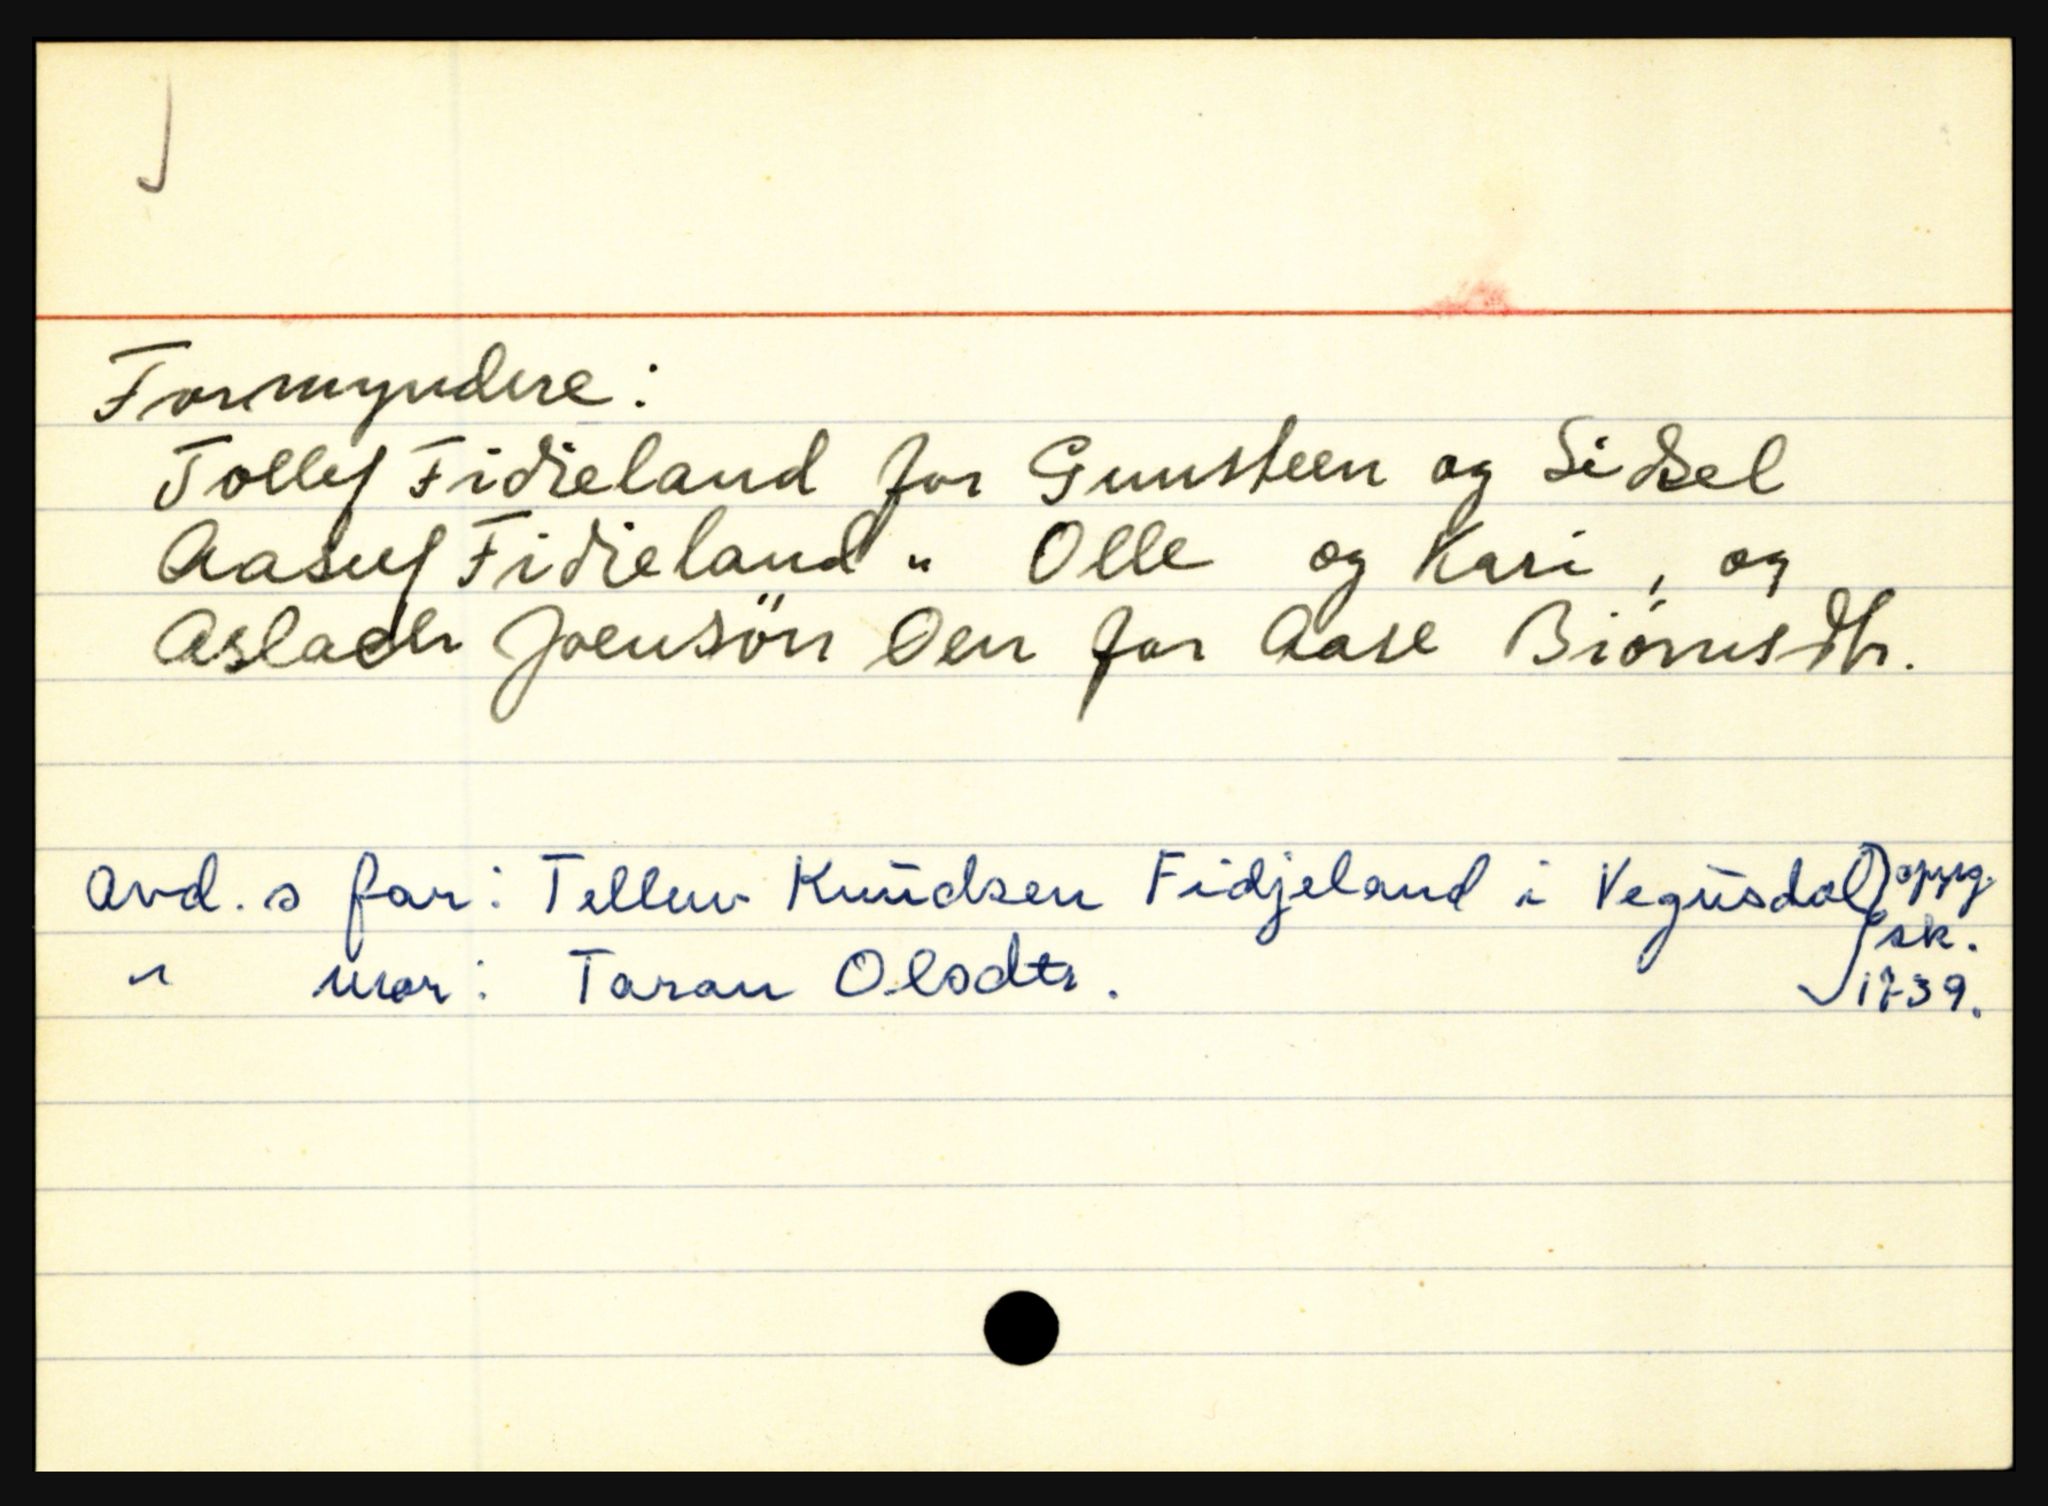 Formyndere:
Tollef Fidieland for Gunsteen og Sidsel
Aasuf Fidieland " Olle og Kari, og
Aslach Joensön Oen for Aase Biörnsdtr.
Avd. s far: Tellev Knudsen Fidjeland i Vegusdal
" mor: Taran Olsdtr.
sk.
1739.